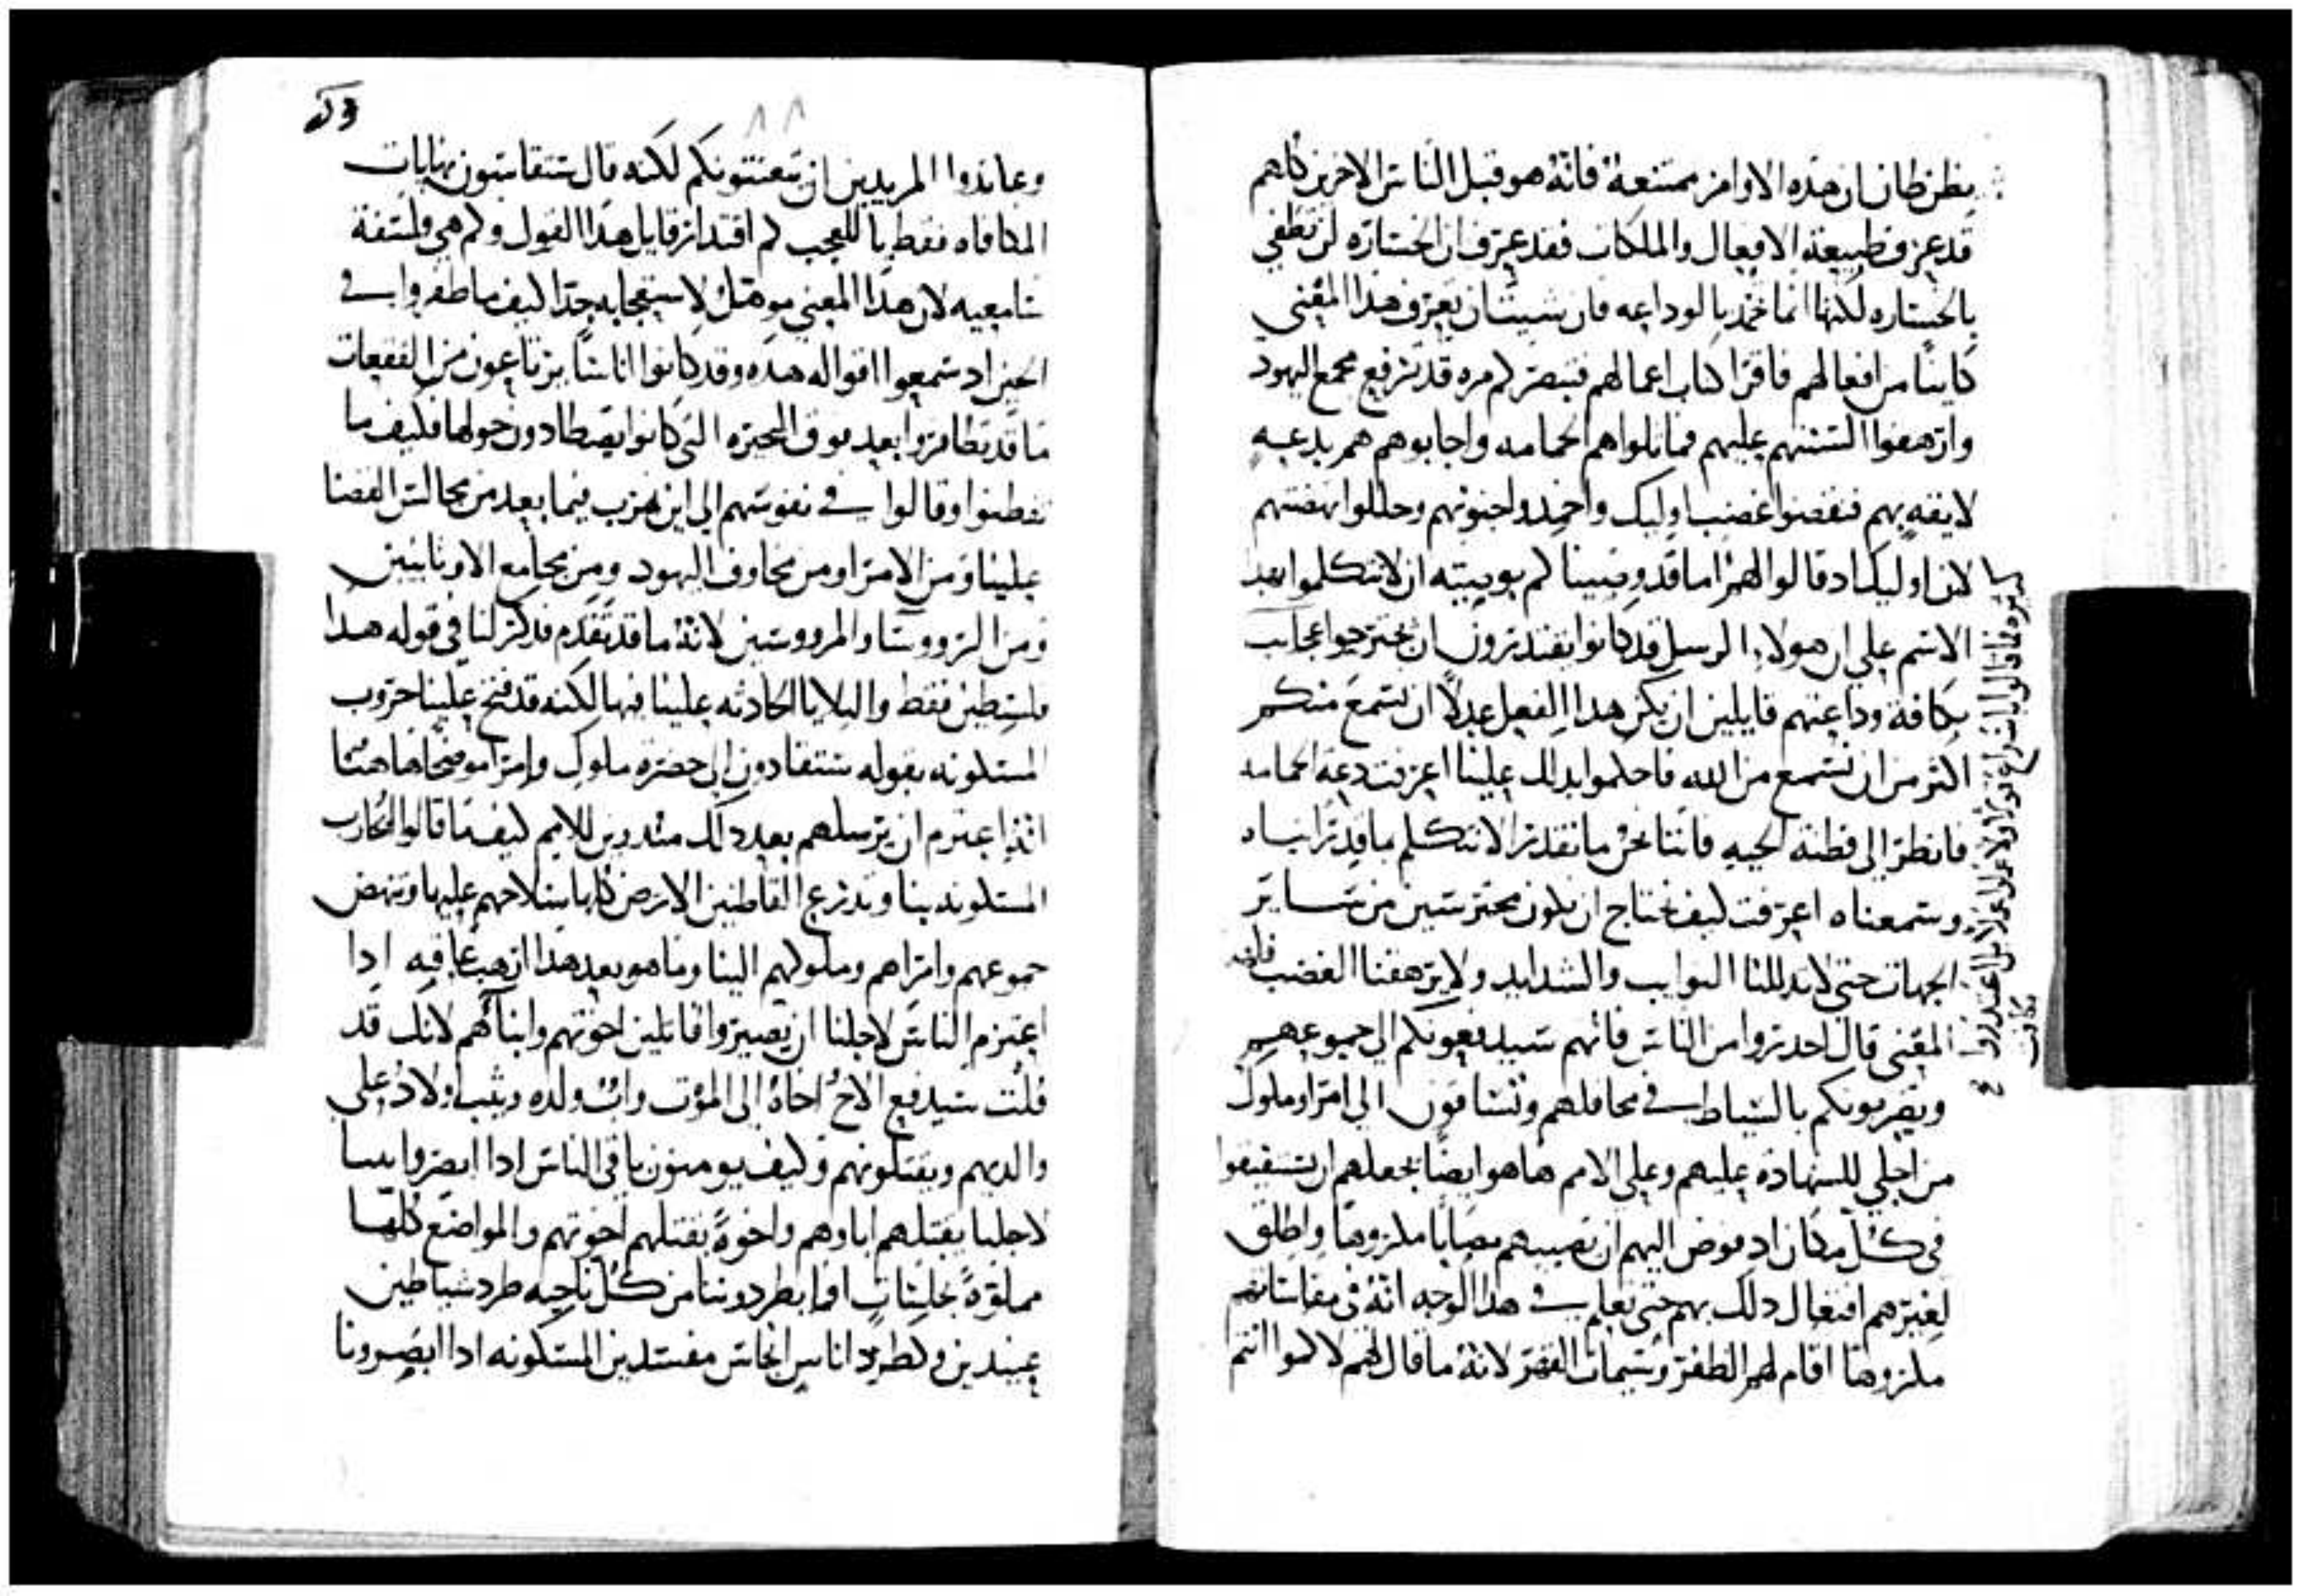 يظن ظان ان هذه الاوامر ممتنعة فانه هو قبل الناس الاخرين كلهم
قد عرف طبيعة الافعال والملكات فقد عرف ان الجسارة لن تطفي
بالجساره لكنها انما تخمد بالوداعه فان شيت ان تعرف هذا المعني
كاينا من افعالهم فاقرا كتاب اعمالهم فتبصر كم مره قد ترفع مجمع اليهود
وارهفوا اسننهم عليهم فماتلوا هم الحمامه واجابوهم هم بدعه
لايقه بهم فنقضوا غضب اوليك واخمدوا جنونهم وحللوا نهضتهم
لان اوليك اد قالوا لهم اما قد وصينا كم بوصيته ان لا تتكلموا بهدا
الاسم علي ان هولاء الرسل قد كانوا يقتدرون ان يجترحوا عجايب
بكافة وداعتهم قايلين ان يكن هدا الفعل عدلا ان نسمع منكم
اكثر من ان نسمع من الله فاحكموا بدلك علينا اعرفت دعة الحمامه
فانظر الي فطنة الحيه فاننا نحن ما نقدر الا نتكلم بما قد رايناه
وسمعناه اعرفت كيف نحتاج ان نكون محترسين من ساير
الجهات حتي لا تدللنا النوايب والشدايد ولا يرهقنا الغضب فلهذا
المعني قال احدروا من الناس فانهم سيدفعونكم الي جموعهم
ويضربونكم بالسياط في محافلهم وتساقون الي امرا وملوك
من اجلي للشهادة عليهم وعلي الامم هاهو ايضا يجعلهم ان يستفيقوا
في كل مكان اد فوض اليهم ان تصيبهم مصايا ملزوها واطلق
لغيرهم افتعال دلك بهم حتي تعلم في هدا الوجه انه في مقاساتهم
ملزوها اقام لهم الظفر وسيمات القهر لانه ما قال لهم لاكموا انتم
وعاندوا المريدين ان يتعنتونكم لكنه قال ستقاسون نهايات
المكافاه فقط يا للعجب كم اقتدار قايل هدا القول وكم هي فلسفة
سامعيه لان هدا المعني موهل لاستعجابه جدا كيف ما طفروا في
الحين اد سمعوا اقواله هده وقد كانوا اناسا يرتاعون من القعقعات
ما قد تطافروا بعد فوق البحيره التي كانوا يصطادون حولها فكيف ما
تفطنوا وقالوا في نفوسهم الي اين نهرب فيما بعد من مجالس القضا
علينا ومن الامرا ومن مخاوف اليهود ومن مجامع الاوثانيين
ومن الرووسا والمرووسين لانه ما قد تقدم فدكر لنا في قوله هدا
فلسطين فقط والبلايا الحادثه علينا فيها لكنه قد فتح علينا حروب
المسكونه بقوله ستقادون الي حضرة ملوك وامرا موضحا هاهنا
انه اعتزم ان يرسلهم بعد دلك مندرين للامم كيف ما قالوا لحارب
المسكونه بنا وتدرع القاطنين الارض كلها بسلاحهم عليها وتنهض
جموعهم وامراهم وملوكهم الينا وما هو بعد هدا ارهب عاقبه ادا
اعتزم الناس لاجلنا ان يصيروا قاتلين اخوتهم وابناهم لانك قد
قلت سيدفع الاخ اخاه الي الموت واب ولده ويثب اولاد علي
والديهم ويقتلونهم وكيف يومنون باقي الناس ادا ابصروا بنينا
لاجلنا يقتلهم اباوهم واخوة تقتلهم اخوتهم والمواضع كلها
مملوة نجاسات افما يطردوننا من كل ناحيه طرد شياطين
عنيدين وكطرد اناس انجاس مفسدين المسكونه ادا ابصرونا